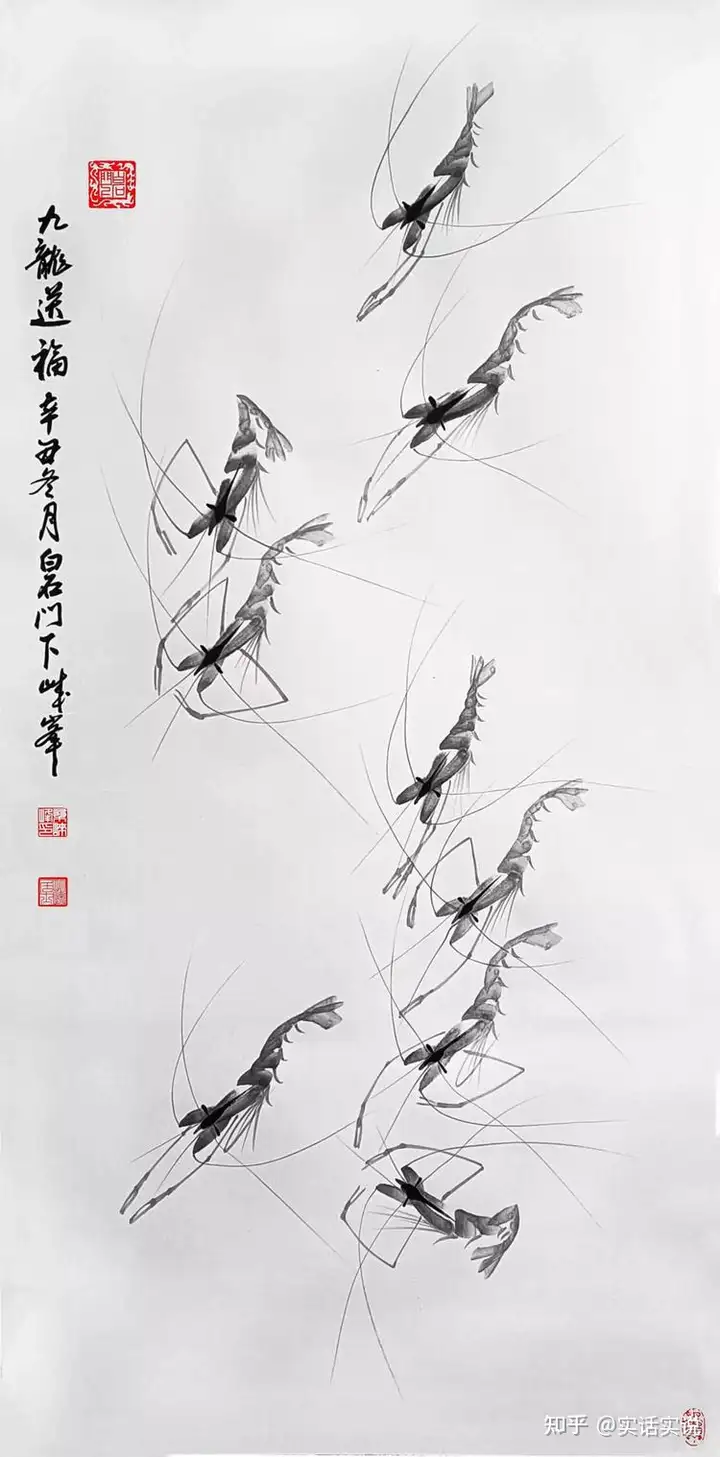 九龍送福辛丑冬月白石门下峸峯
知乎 @实话实说